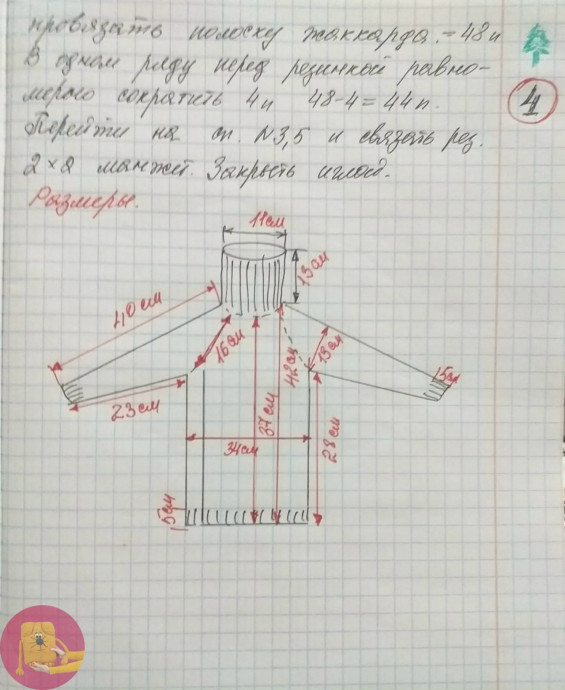 провязать полоску жаккарда. = 48 п
В одном ряду перед резинкой равно-
мерно сократить 4 п 48-4 = 44 п.
Перейти на сп. N3,5 и связать рез.
2×2 манжет. Закрыть иглой.
4
Размеры.
11 см
13 см
40 см
16 см
42 см
13 см
5 см
23 см
37 см
34 см
28 см
5 см